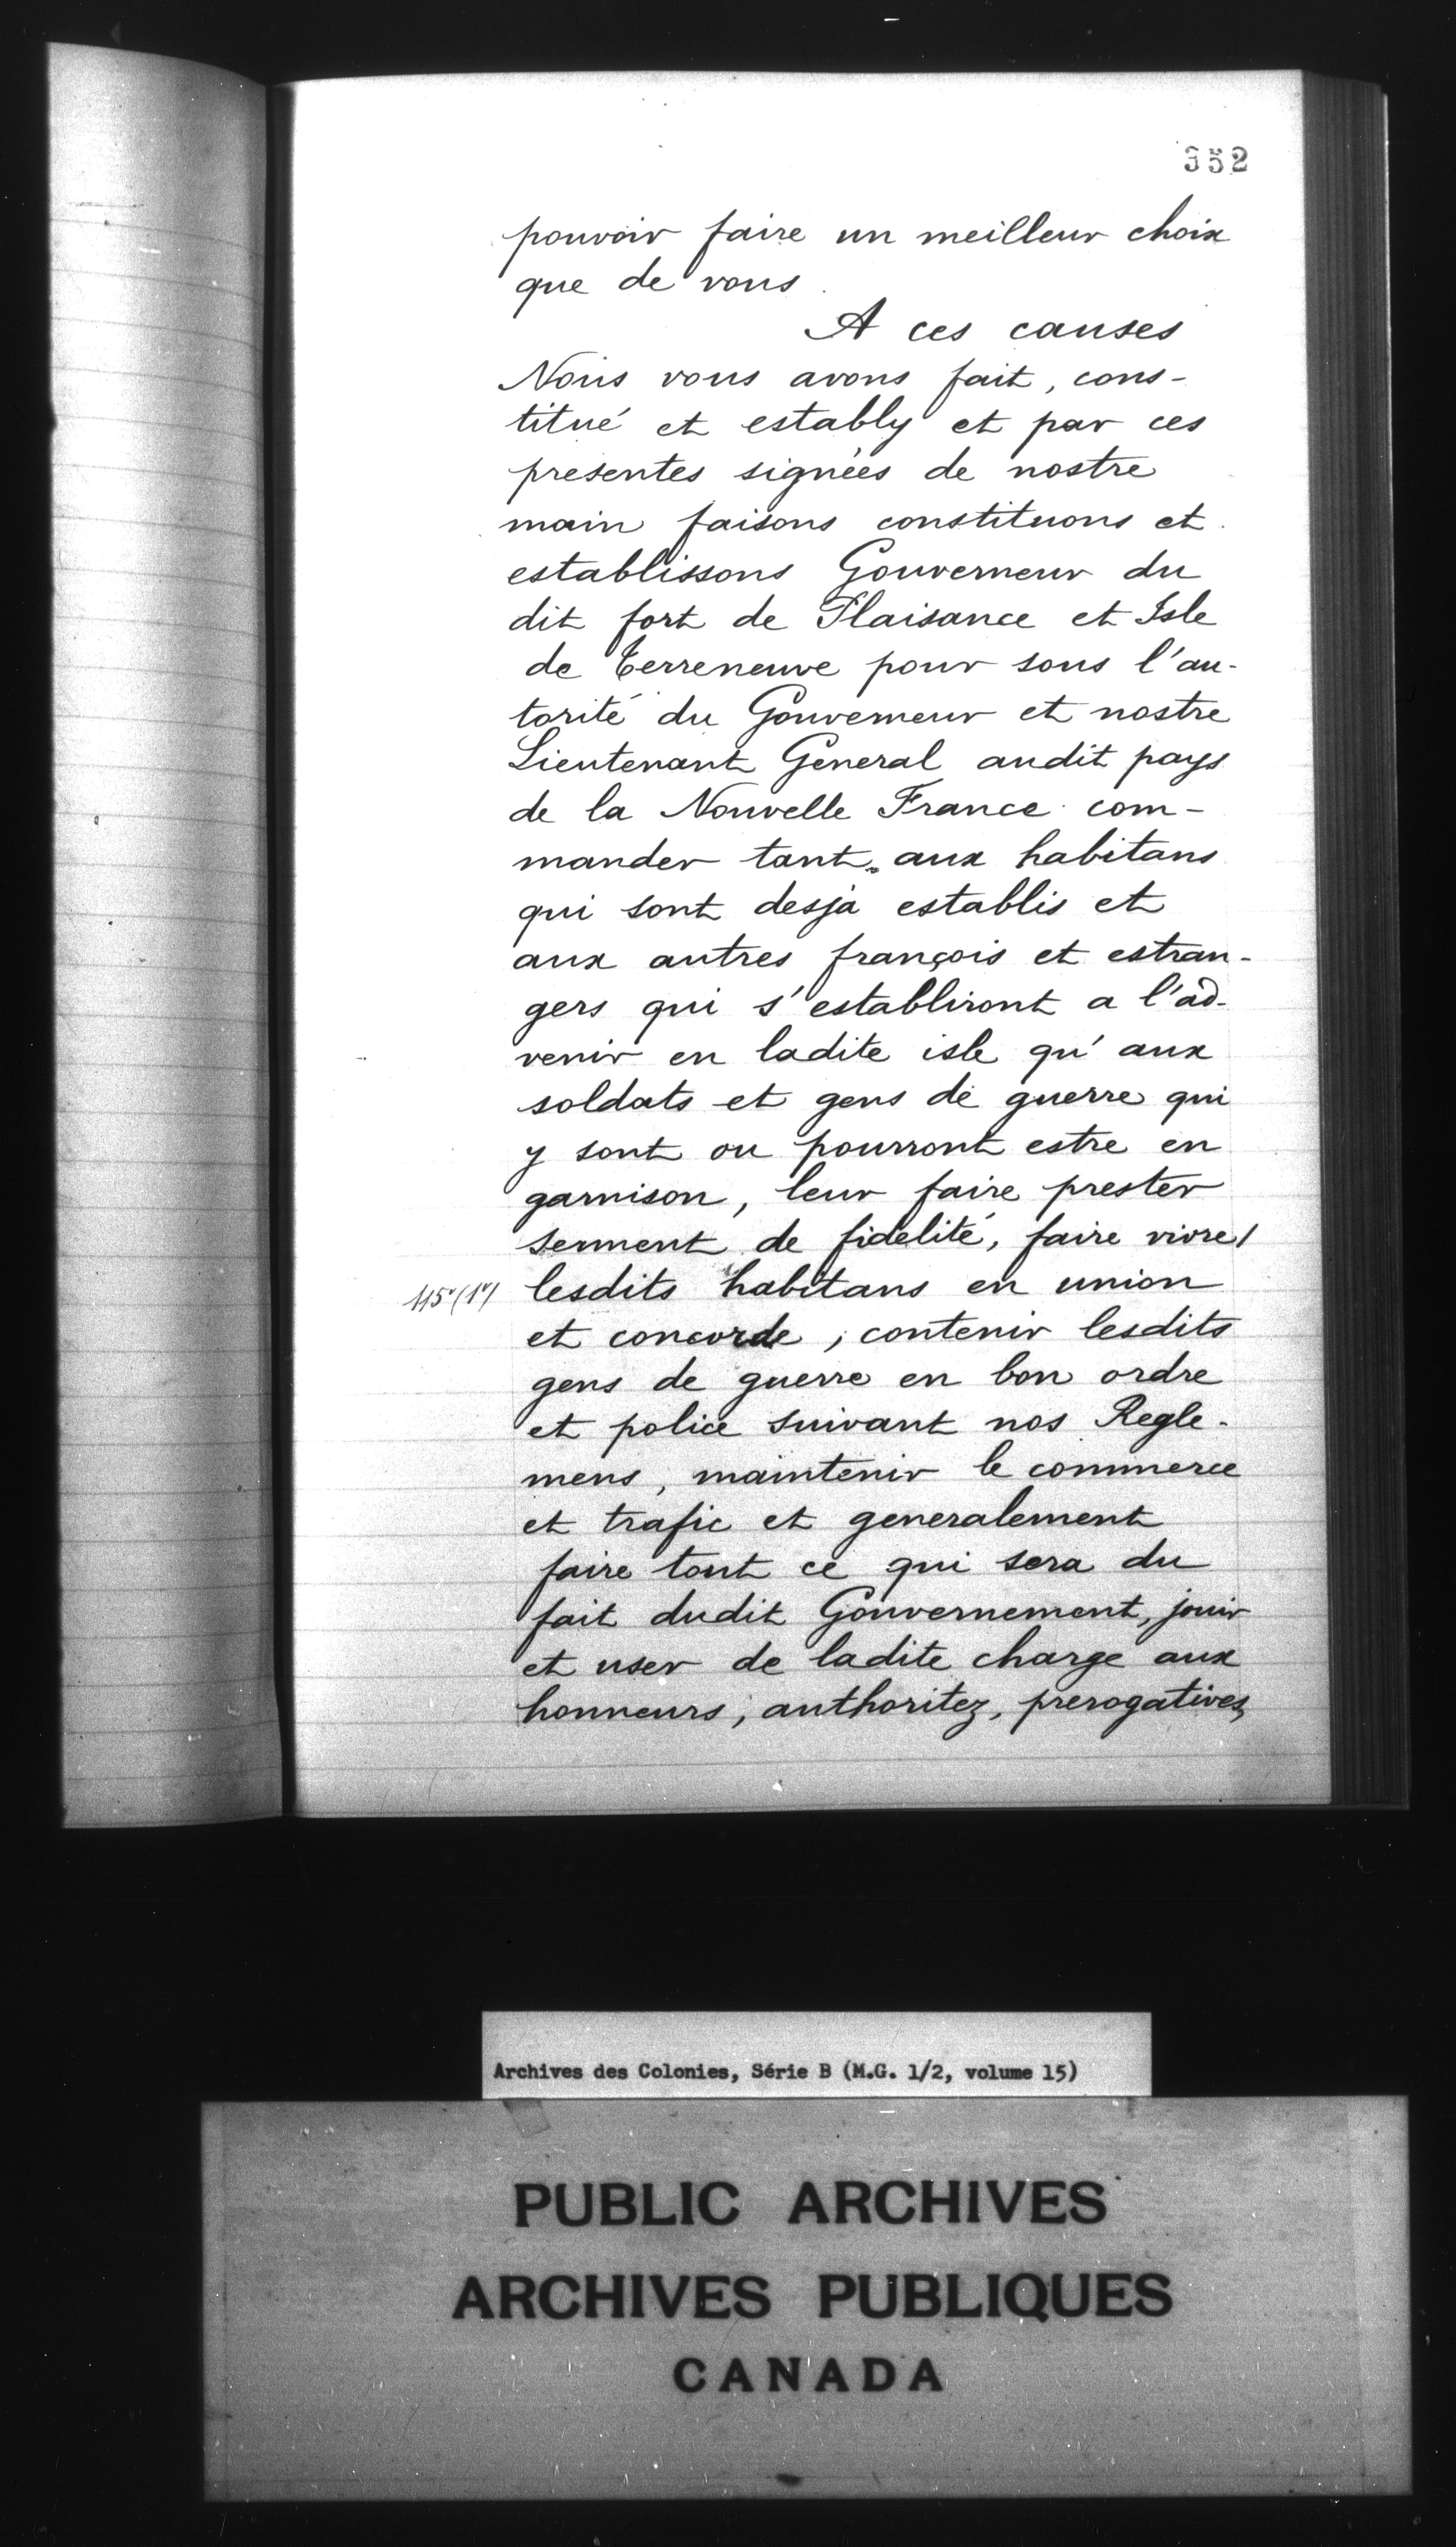 352
pouvoir faire un meilleur choix
que de vous.
A ces causes
Nous vous avons fait, cons-
titué et estably et par ces
presentes signées de nostre
main faisons constituons et
establissons Gouverneur du
dit fort de Plaisance et Isle
de Terreneuve pour sous l'au-
torité du Gouverneur et nostre
Lieutenant General audit pays
de la Nouvelle France com-
mander tant aux habitans
qui sont desja establis et
aux autres françois et estran-
gers qui s'establiront a l'ad-
venir en ladite isle qu'aux
soldats et gens de guerre qui
y sont ou pourront estre en
garnison, leur faire prester
serment de fidelité, faire vivre/
lesdits habitans en union
et concorde, contenir lesdits
gens de guerre en bon ordre
et police suivant nos Regle-
mens, maintenir le commerce
et trafic et generalement
faire tout ce qui sera du
fait dudit Gouvernement, jouir
et user de ladite charge aux
honneurs, authoritez, prerogatives,
Archives des Colonies, Série B (M.G. 1/2, volume 15)
PUBLIC ARCHIVES
ARCHIVES PUBLIQUES
CANADA